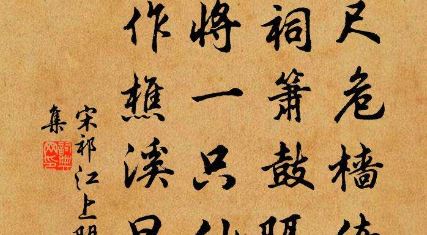 尺危檣
祠簫鼓
將一只
作樵溪
宋祁江上
集